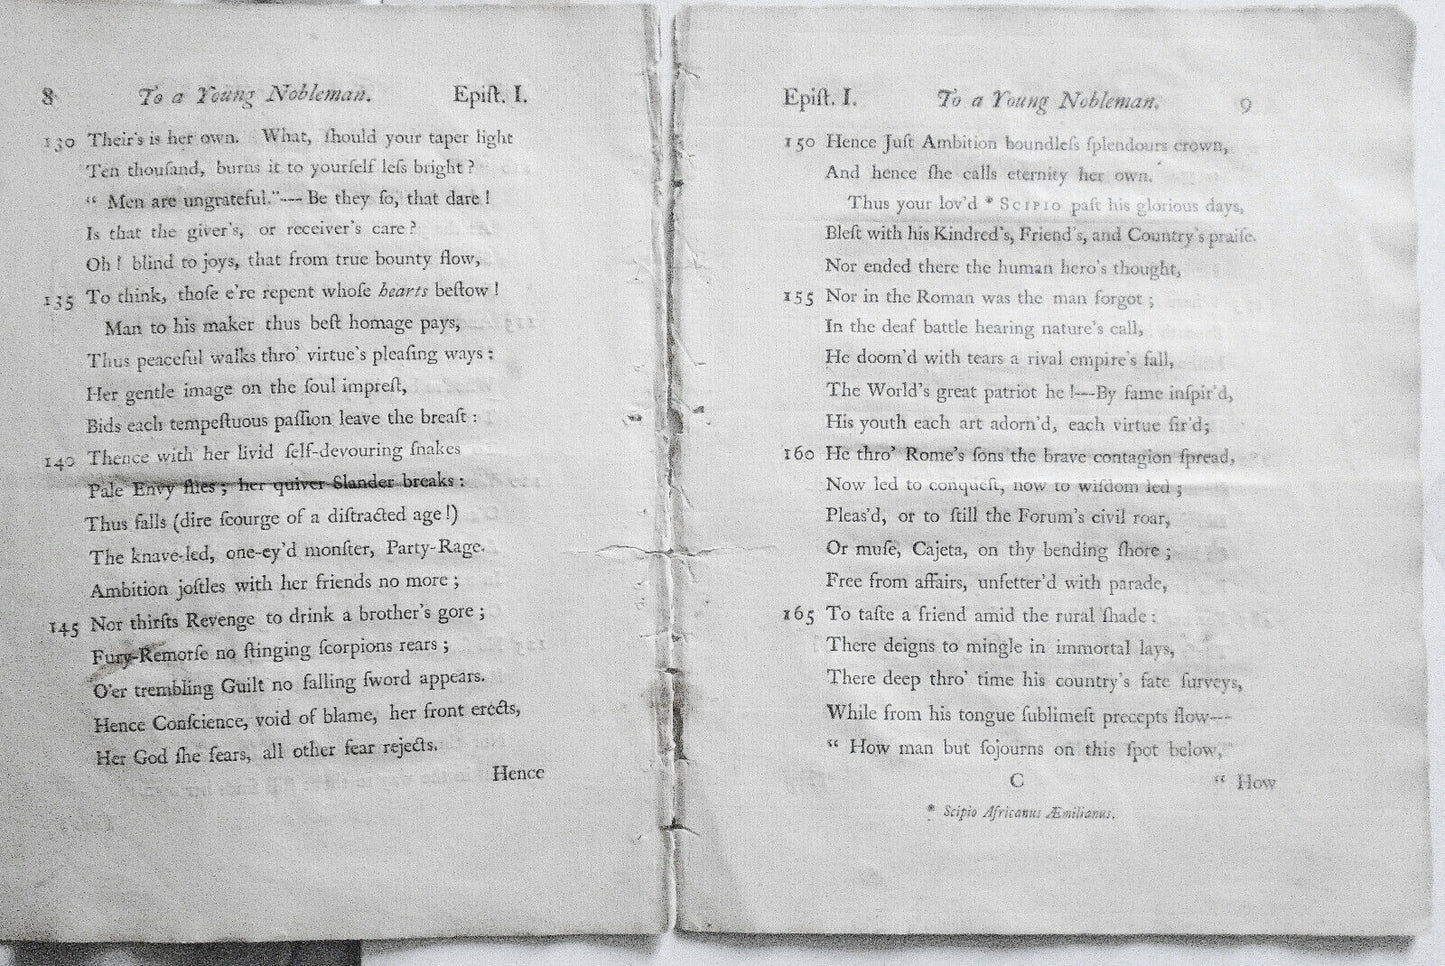 8 To a Young Nobleman. Epiſt. I.
130 Their's is her own. What, ſhould your taper light
Ten thouſand, burns it to yourſelf leſs bright?
“ Men are ungrateful.”--- Be they ſo, that dare!
Is that the giver's, or receiver's care?
Oh! blind to joys, that from true bounty flow,
135 To think, thoſe e're repent whoſe hearts beſtow!
Man to his maker thus beſt homage pays,
Thus peaceful walks thro' virtue's pleaſing ways:
Her gentle image on the ſoul impreſt,
Bids each tempeſtuous paſſion leave the breaſt:
140 Thence with her livid ſelf-devouring ſnakes
Pale Envy flies; her quiver Slander breaks:
Thus falls (dire ſcourge of a diſtracted age!)
The knave-led, one-ey'd monſter, Party-Rage.
Ambition joſtles with her friends no more;
145 Nor thirſts Revenge to drink a brother's gore;
Fury-Remorſe no ſtinging ſcorpions rears;
O'er trembling Guilt no falling ſword appears.
Hence Conſcience, void of blame, her front erects,
Her God ſhe fears, all other fear rejects.
Hence
Epiſt. I. To a Young Nobleman. 9
150 Hence Juſt Ambition boundleſs ſplendours crown,
And hence ſhe calls eternity her own.
Thus your lov'd * SCIPIO paſt his glorious days,
Bleſt with his Kindred's, Friend's, and Country's praiſe.
Nor ended there the human hero's thought,
155 Nor in the Roman was the man forgot;
In the deaf battle hearing nature's call,
He doom'd with tears a rival empire's fall,
The World's great patriot he!---By fame inſpir'd,
His youth each art adorn'd, each virtue fir'd;
160 He thro' Rome's ſons the brave contagion ſpread,
Now led to conqueſt, now to wiſdom led;
Pleas'd, or to ſtill the Forum's civil roar,
Or muſe, Cajeta, on thy bending ſhore;
Free from affairs, unfetter'd with parade,
165 To taſte a friend amid the rural ſhade:
There deigns to mingle in immortal lays,
There deep thro' time his country's fate ſurveys,
While from his tongue ſublimeſt precepts flow---
“ How man but ſojourns on this ſpot below,
C “ How
* Scipio Africanus Æmilianus.